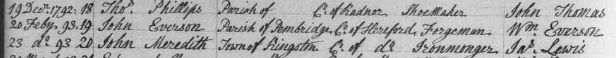 19 Decr. 1792. 18. Thos. Phillips Parish of Co. of Radnor Shoemaker John Thomas
20 Feby. 93. 19 John Everson Parish of Pembridge Co. of Hereford, Forgeman Wm. Everson
23 do. 93 20 John Meredith Town of Kington Co. of do. Ironmonger Jas. Lewis